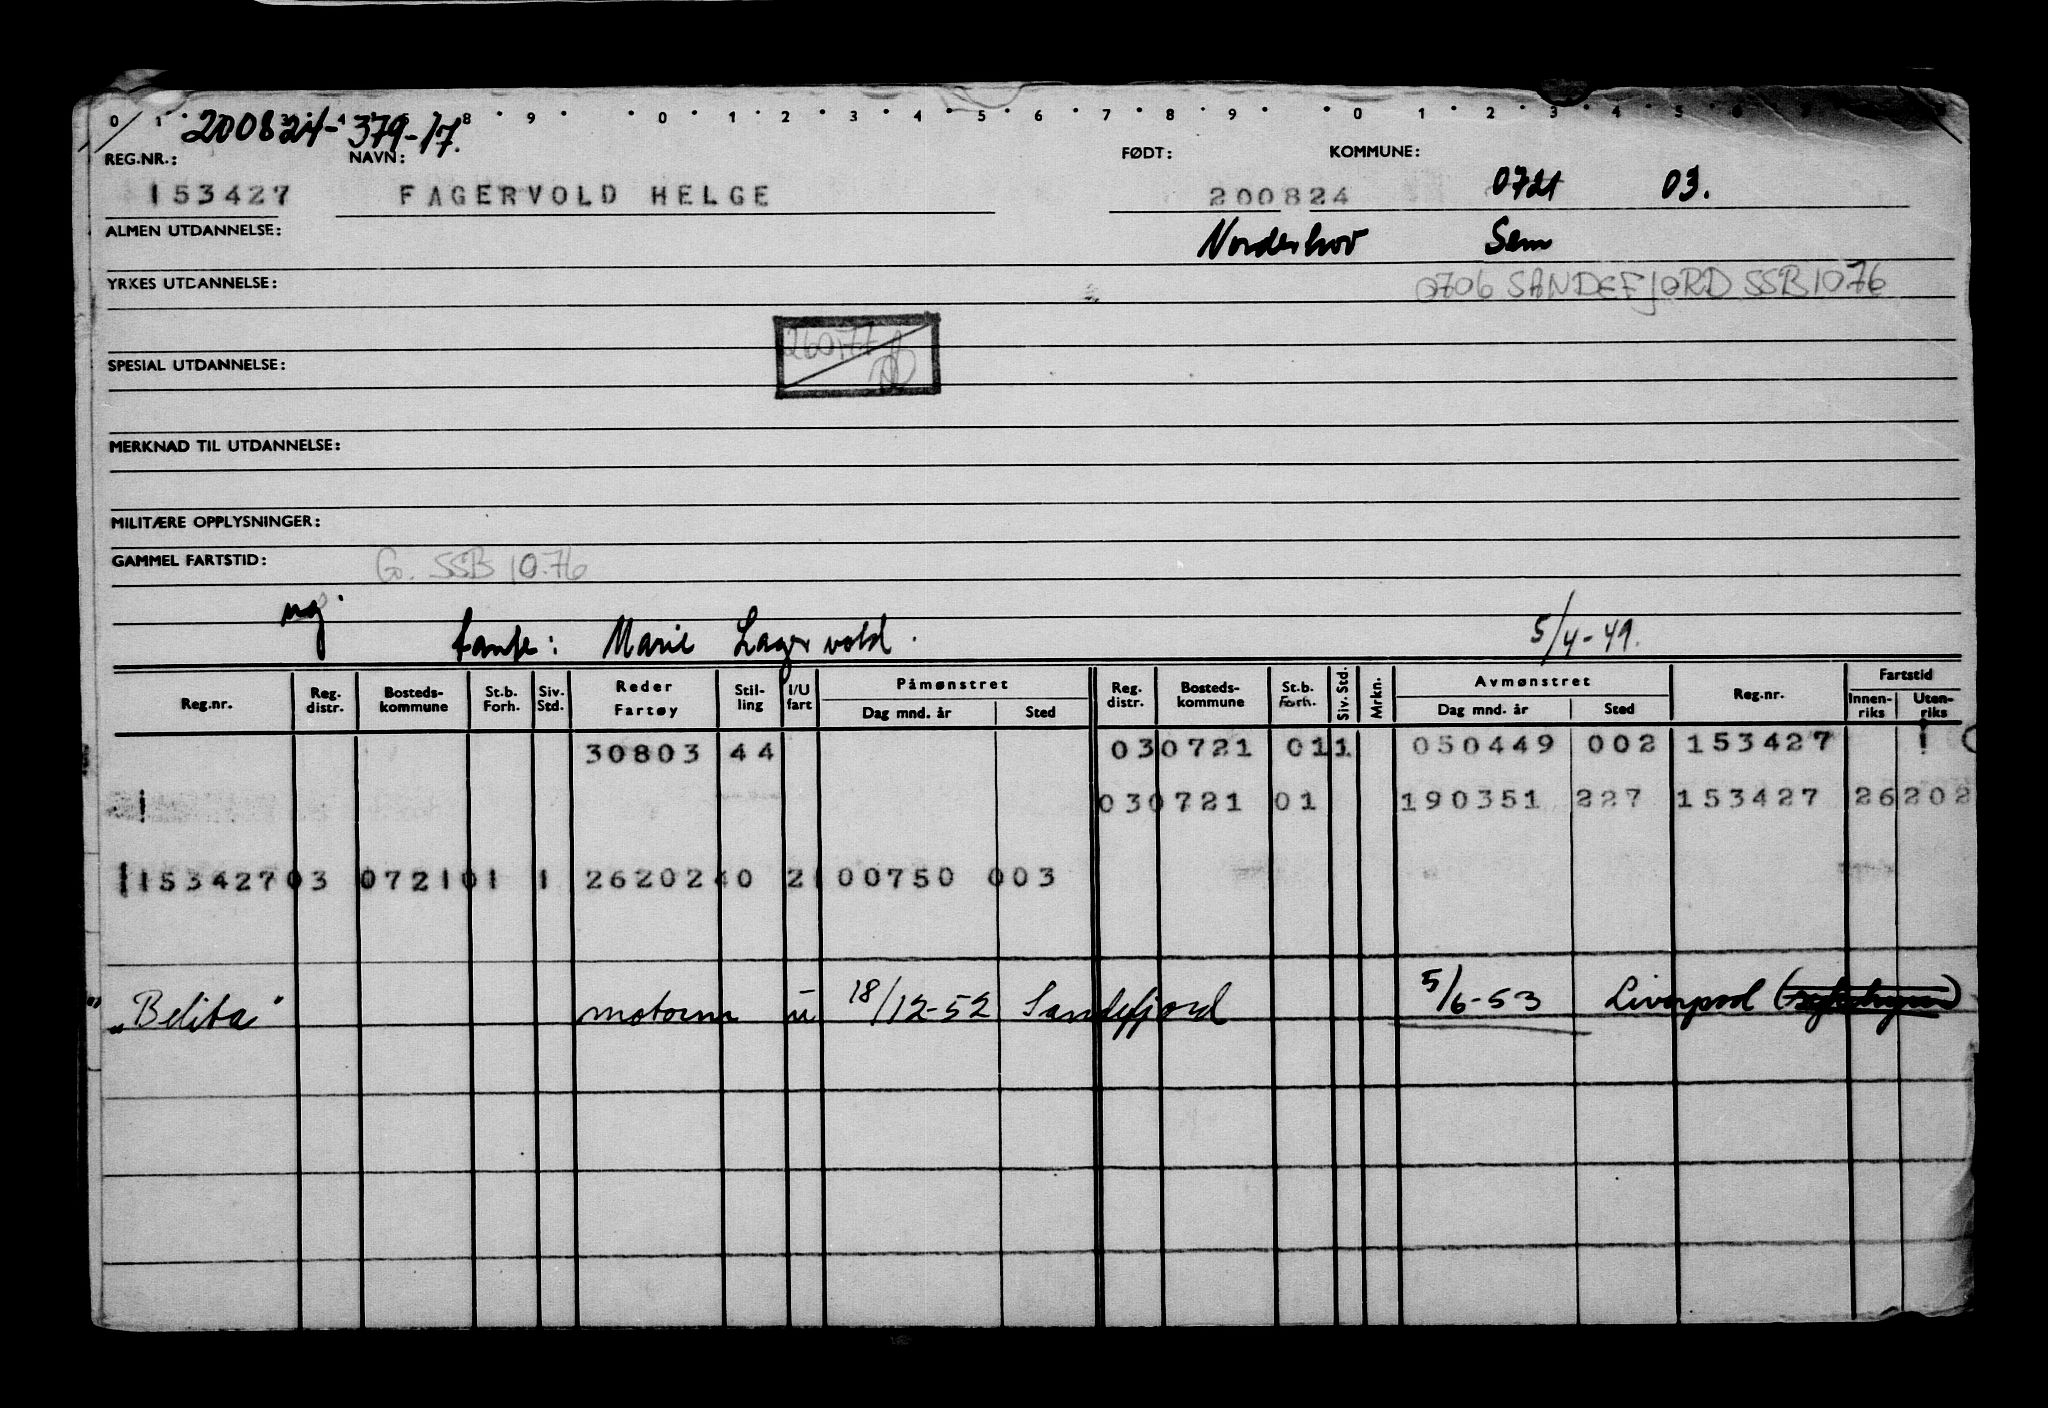 0 1 8 9 0 1 2 3 4 5 6 7 8 9 0 1 2 3 4 5 6
200824-379-17.
REG.NR.: NAVN: FØDT: KOMMUNE:
153427 FAGERVOLD HELGE 200824 0721 03.
ALMEN UTDANNELSE: Norderhov Sem
YRKES UTDANNELSE: 0706 SANDEFJORD SSB 10.76
SPESIAL UTDANNELSE:
MERKNAD TIL UTDANNELSE:
MILITÆRE OPPLYSNINGER:
GAMMEL FARTSTID: G. SSB 10.76
tante: Marie Lagervold. 5/4-49.
Reg.nr. Reg. distr. Bosteds-kommune St.b. Forh. Siv. Std. Reder Fartøy Stil-ling I/U fart Påmønstret Dag mnd. år Sted Reg. distr. Bosteds-kommune St.b. Forh. Siv. Std. Mrkn. Avmønstret Dag mnd. år Sted Reg.nr. Fartstid Innen-riks Uten-riks
30803 44 030721 011 050449 002 153427
030721 01 190351 227 153427 26202
153427 03 0721 01 1 26202 40 2 00750 003
"Belita" motorm u 18/12-52 Sandefjord 5/6-53 Liverpool